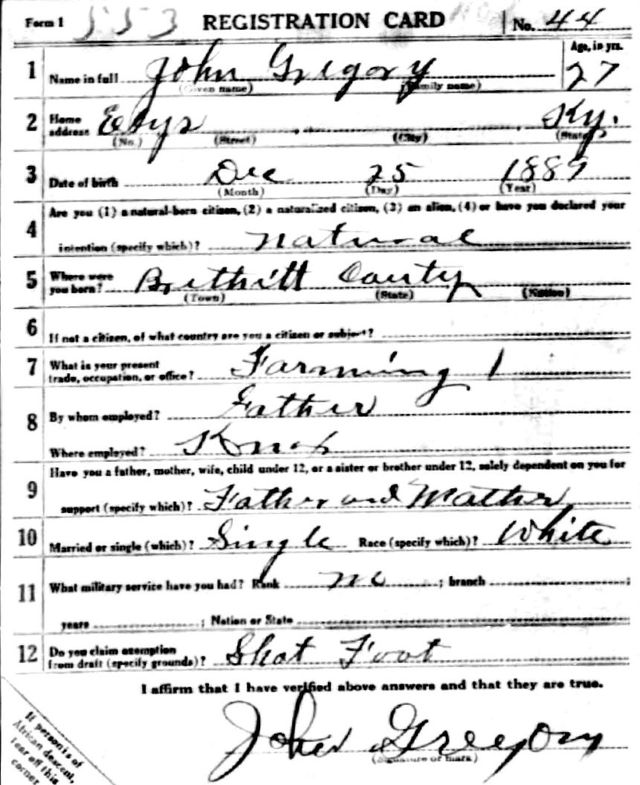 Form 1 553 REGISTRATION CARD No. 44
1 Name in full John Gregory Age, in yrs. 27
(Given name) (Family name)
2 Home address Ky.
(No.) (Street) (City) (State)
3 Date of birth Dec 25 1889
(Month) (Day) (Year)
Are you (1) a natural-born citizen, (2) a naturalized citizen, (3) an alien, (4) or have you declared your
4 intention (specify which)? Natural
5 Where were you born? Brethitt County
(Town) (State) (Nation)
6 If not a citizen, of what country are you a citizen or subject?
7 What is your present trade, occupation, or office? Farming 1
8 By whom employed? Father
Where employed?
Have you a father, mother, wife, child under 12, or a sister or brother under 12, solely dependent on you for
9 support (specify which)? Father and Mother
10 Married or single (which)? Single Race (specify which)? White
11 What military service have you had? Rank no ; branch ;
years ; Nation or State
12 Do you claim exemption from draft (specify grounds)? Shot Foot
I affirm that I have verified above answers and that they are true.
John Gregory
(Signature or mark)
If person is of
African descent,
tear off this
corner